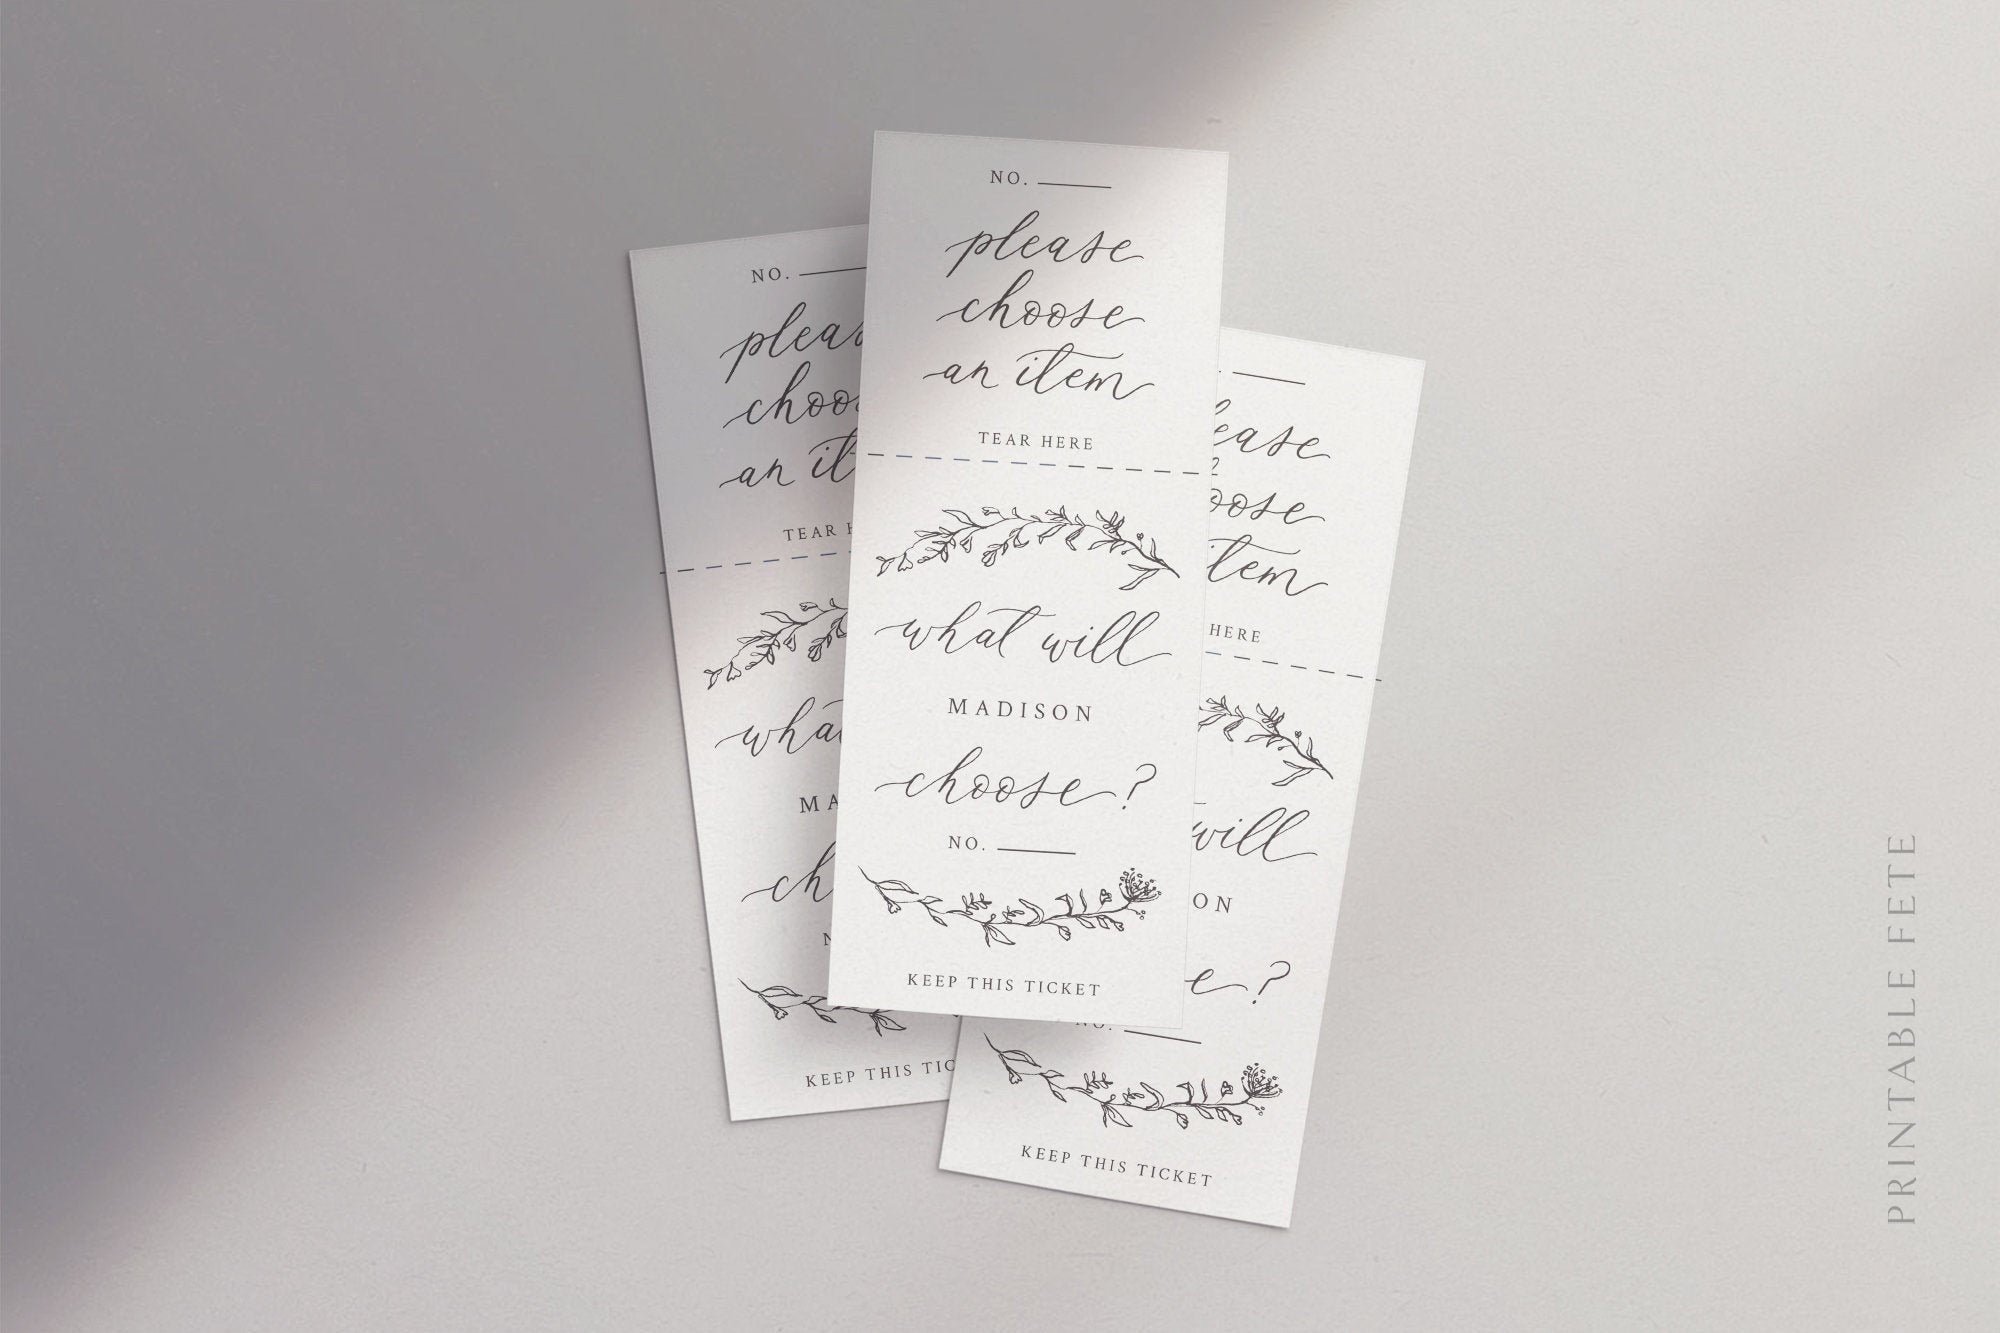 NO.
please
choose
an item
TEAR HERE
what will
MADISON
choose?
NO.
KEEP THIS TICKET
NO.
pleas
choos
an it
TEAR H
wha
MA
ch
N
KEEP THIS TIC
ease
oose
item
HERE
will
ON
e?
NO.
KEEP THIS TICKET
PRINTABLE FETE